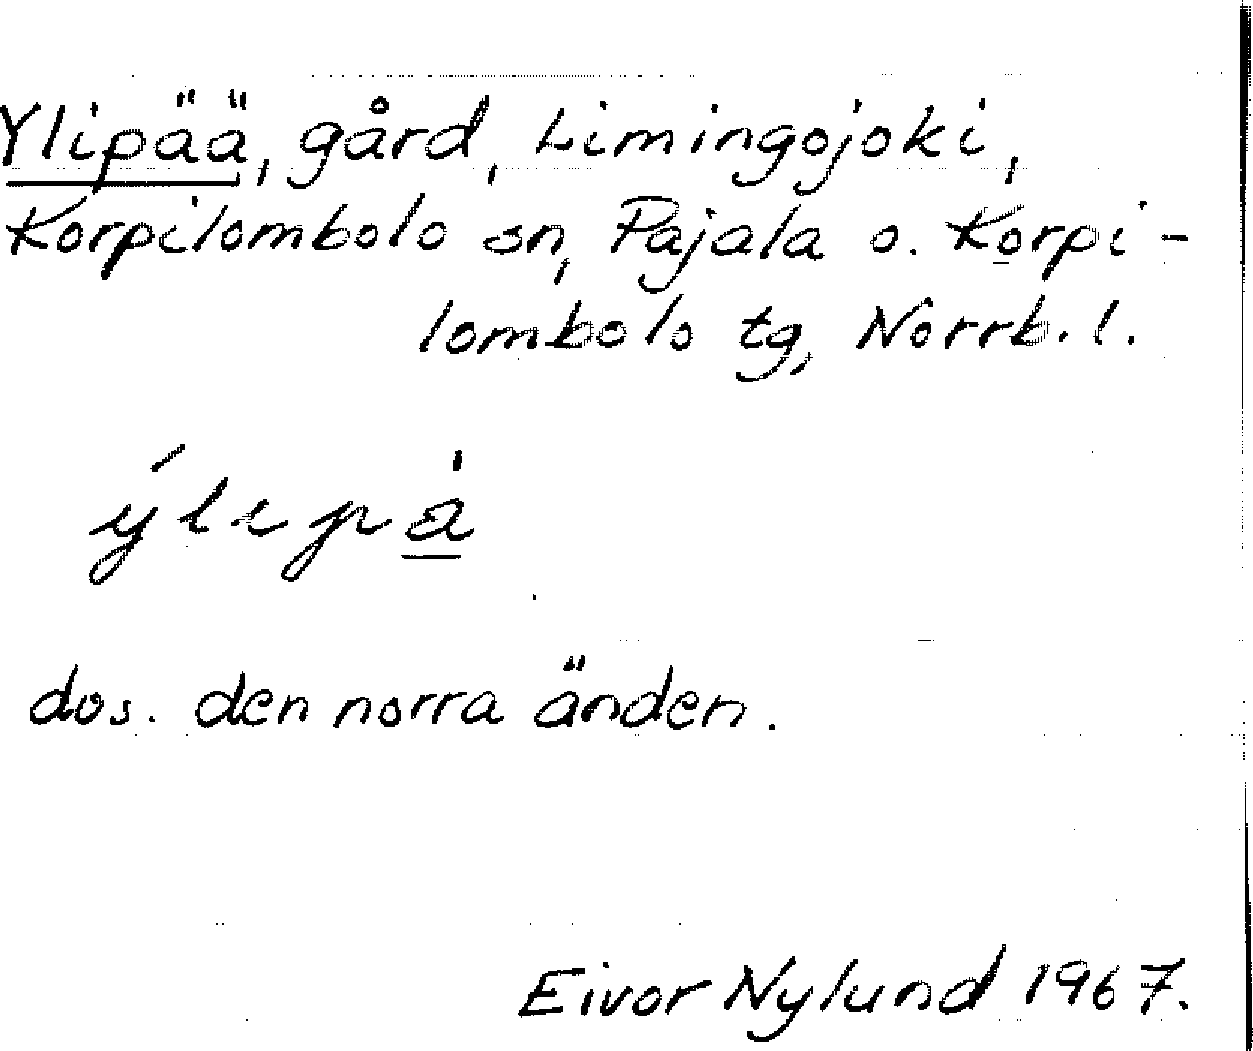 Ylipää, gård, Limingojoki,
Korpilombolo sn, Pajala o. Korpi-
lombolo tg, Norrb. l.
dvs. den norra änden.
Eivor Nylund 1967.